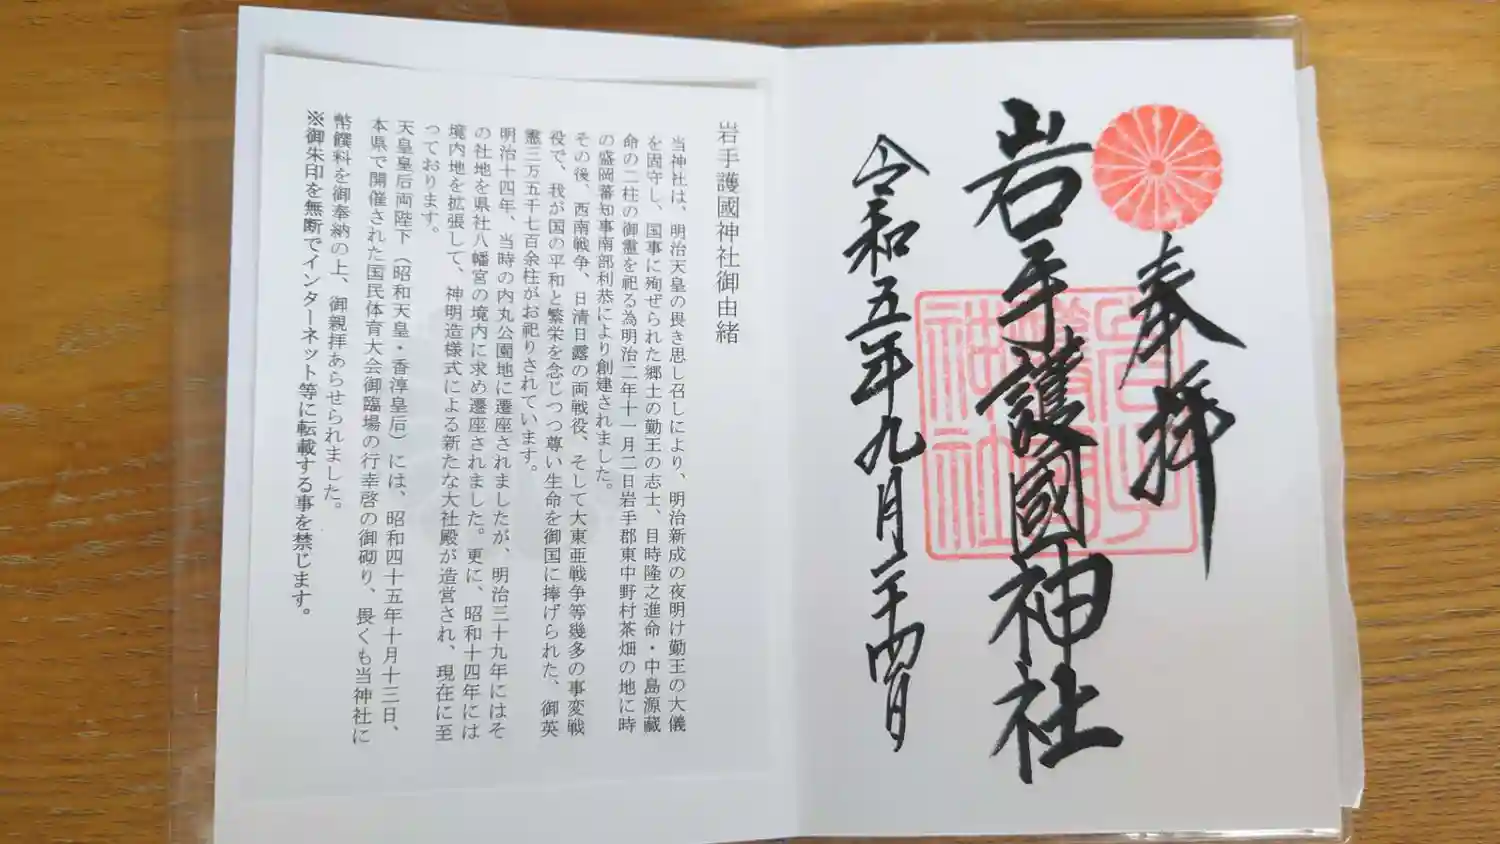 奉拝
岩手護國神社
令和五年九月二十四日
岩手護國神社
岩手護國神社御由緒
当神社は、明治天皇の畏き思し召しにより、明治新成の夜明け勤王の大儀
を固守し、国事に殉ぜられた郷土の勤王の志士、目時隆之進命・中島源藏
命の二柱の御霊を祀る為明治二年十一月二日岩手郡東中野村茶畑の地に時
の盛岡蕃知事南部利恭により創建されました。
その後、西南戦争、日清日露の両戦役、そして大東亜戦争等幾多の事変戦
役で、我が国の平和と繁栄を念じつつ尊い生命を御国に捧げられた、御英
霊三万五千七百余柱がお祀りされています。
明治十四年、当時の内丸公園地に遷座されましたが、明治三十九年にはそ
の社地を県社八幡宮の境内に求め遷座されました。更に、昭和十四年には
境内地を拡張して、神明造様式による新たな大社殿が造営され、現在に至
っております。
天皇皇后両陛下（昭和天皇・香淳皇后）には、昭和四十五年十月十三日、
本県で開催された国民体育大会御臨場の行幸啓の御砌り、畏くも当神社に
幣饌料を御奉納の上、御親拝あらせられました。
※御朱印を無断でインターネット等に転載する事を禁じます。